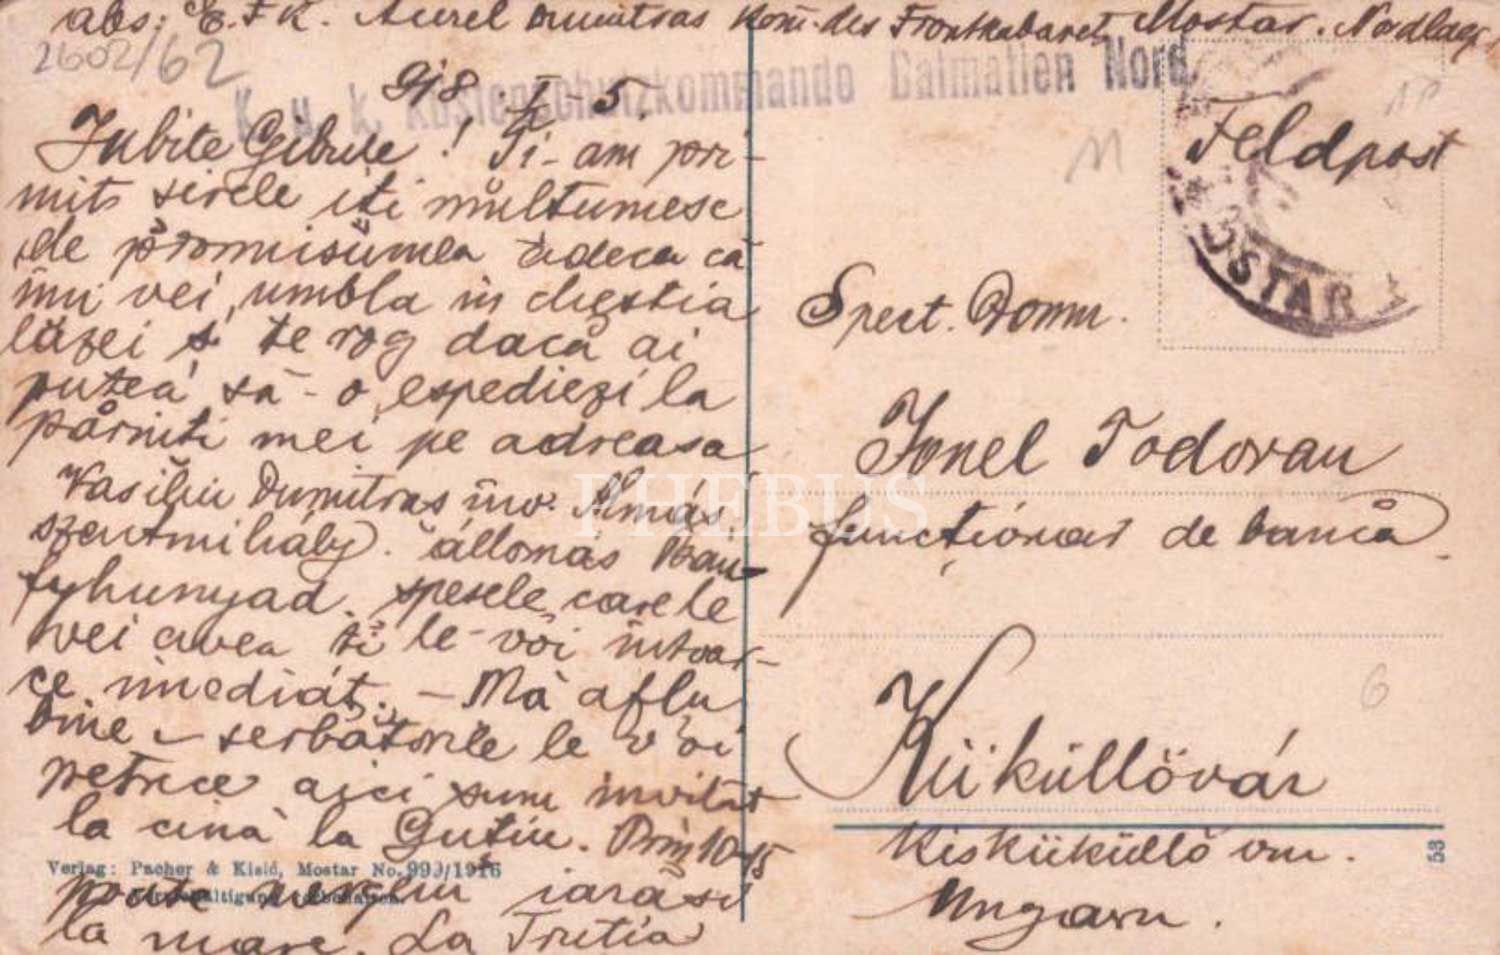 abs: E.F.K. Aurel Dumitras Kom. des Frontkabaret Mostar. Nordlager
2602/62
918 I - 5.
K. u. k. Küstenschutzkommando Dalmatien Nord
Feldpost
MOSTAR
Iubite Gibule! Ți-am pri-
mit sirele iți multumesc
de promisiunea adeca că
imi vei umbla in chestia
lăzei și te rog dacă ai
putea să-o espediezi la
părinti mei pe adreasa
Vasiliu Dumitras inv. Almás
szentmihály. állomas Ban-
fyhunyad. spesele care le
vei avea ti le-voi intoar-
ce imediat. - Mă aflu
bine - serbătorile le voi
petrece aici sunt invitat
la cină la Guțiu. Prin 10-15
poate merg iarăsi
la mare. La Tretia
Spect. Domn.
Ionel Todoran
funcționar de bancă
Küküllövár
Kisküküllő vm.
Ungarn.
Verlag: Pacher & Kisić, Mostar No. 993/1916
53
6
PHEBUS